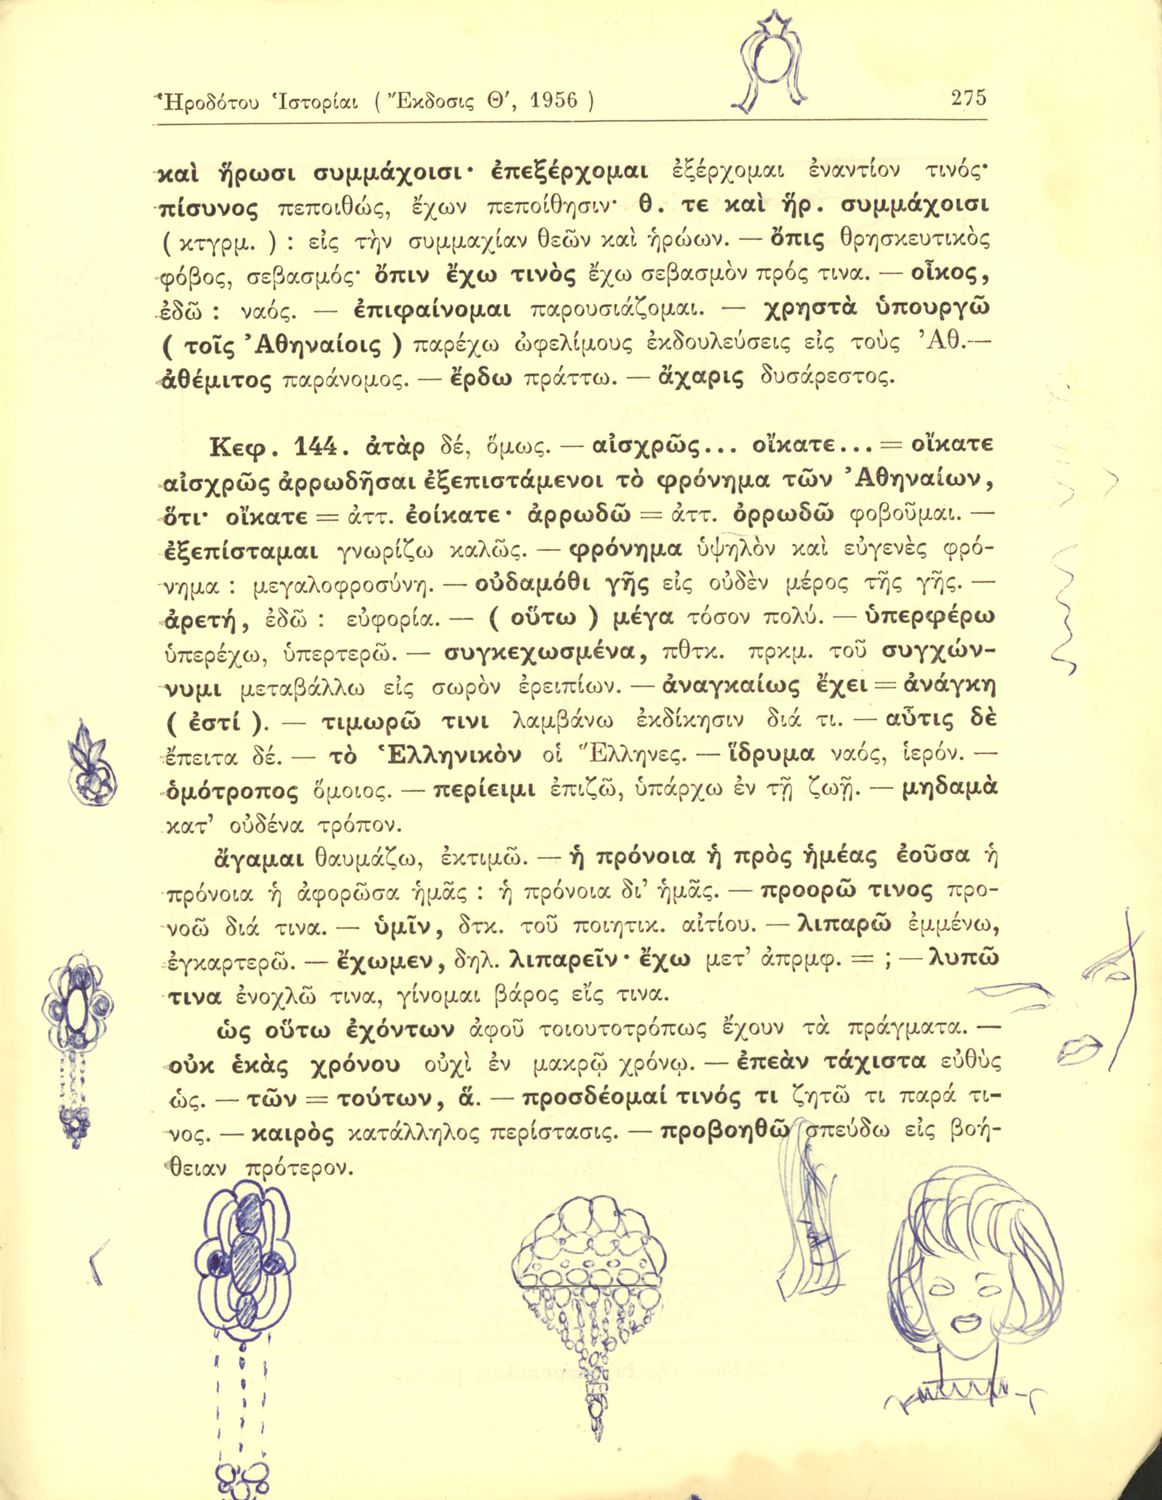 Ἡροδότου Ἱστορίαι ( Ἔκδοσις Θ′, 1956 ) 275
καὶ ἥρωσι συμμάχοισι· ἐπεξέρχομαι ἐξέρχομαι ἐναντίον τινός·
πίσυνος πεποιθώς, ἔχων πεποίθησιν· θ. τε καὶ ἥρ. συμμάχοισι
( κτγρμ. ) : εἰς τὴν συμμαχίαν θεῶν καὶ ἡρώων. — ὄπις θρησκευτικὸς
φόβος, σεβασμός· ὄπιν ἔχω τινὸς ἔχω σεβασμὸν πρός τινα. — οἶκος,
ἐδῶ : ναός. — ἐπιφαίνομαι παρουσιάζομαι. — χρηστὰ ὑπουργῶ
( τοῖς Ἀθηναίοις ) παρέχω ὠφελίμους ἐκδουλεύσεις εἰς τοὺς Ἀθ.—
ἀθέμιτος παράνομος. — ἔρδω πράττω. — ἄχαρις δυσάρεστος.
Κεφ. 144. ἀτὰρ δέ, ὅμως. — αἰσχρῶς... οἴκατε... = οἴκατε
αἰσχρῶς ἀρρωδῆσαι ἐξεπιστάμενοι τὸ φρόνημα τῶν Ἀθηναίων,
ὅτι· οἴκατε = ἀττ. ἐοίκατε· ἀρρωδῶ = ἀττ. ὀρρωδῶ φοβοῦμαι. —
ἐξεπίσταμαι γνωρίζω καλῶς. — φρόνημα ὑψηλὸν καὶ εὐγενὲς φρό-
νημα : μεγαλοφροσύνη. — οὐδαμόθι γῆς εἰς οὐδὲν μέρος τῆς γῆς. —
ἀρετή, ἐδῶ : εὐφορία. — ( οὕτω ) μέγα τόσον πολύ. — ὑπερφέρω
ὑπερέχω, ὑπερτερῶ. — συγκεχωσμένα, πθτκ. πρκμ. τοῦ συγχών-
νυμι μεταβάλλω εἰς σωρὸν ἐρειπίων. — ἀναγκαίως ἔχει = ἀνάγκη
( ἐστί ). — τιμωρῶ τινι λαμβάνω ἐκδίκησιν διά τι. — αὖτις δὲ
ἔπειτα δέ. — τὸ Ἑλληνικὸν οἱ Ἕλληνες. — ἵδρυμα ναός, ἱερόν. —
ὁμότροπος ὅμοιος. — περίειμι ἐπιζῶ, ὑπάρχω ἐν τῇ ζωῇ. — μηδαμὰ
κατ’ οὐδένα τρόπον.
ἄγαμαι θαυμάζω, ἐκτιμῶ. — ἡ πρόνοια ἡ πρὸς ἡμέας ἐοῦσα ἡ
πρόνοια ἡ ἀφορῶσα ἡμᾶς : ἡ πρόνοια δι’ ἡμᾶς. — προορῶ τινος προ-
νοῶ διά τινα. — ὑμῖν, δτκ. τοῦ ποιητικ. αἰτίου. — λιπαρῶ ἐμμένω,
ἐγκαρτερῶ. — ἔχωμεν, δηλ. λιπαρεῖν· ἔχω μετ’ ἀπρμφ. = ; — λυπῶ
τινα ἐνοχλῶ τινα, γίνομαι βάρος εἴς τινα.
ὡς οὕτω ἐχόντων ἀφοῦ τοιουτοτρόπως ἔχουν τὰ πράγματα. —
οὐκ ἑκὰς χρόνου οὐχὶ ἐν μακρῷ χρόνῳ. — ἐπεὰν τάχιστα εὐθὺς
ὡς. — τῶν = τούτων, ἅ. — προσδέομαί τινός τι ζητῶ τι παρά τι-
νος. — καιρὸς κατάλληλος περίστασις. — προβοηθῶ σπεύδω εἰς βοή-
θειαν πρότερον.